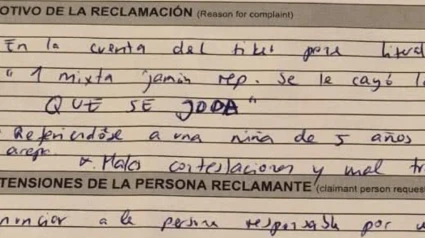 OTIVO DE LA RECLAMACIÓN (Reason for complaint)
En la cuenta del tiket pone litera
" 1 mixta jamón rep. Se le cayó l
QUE SE JODA "
Refiriendose a una niña de 5 años
arepe.
* Malas contestaciones y mal tr
TENSIONES DE LA PERSONA RECLAMANTE (claimant person reques
nunciar a la persona responsable por